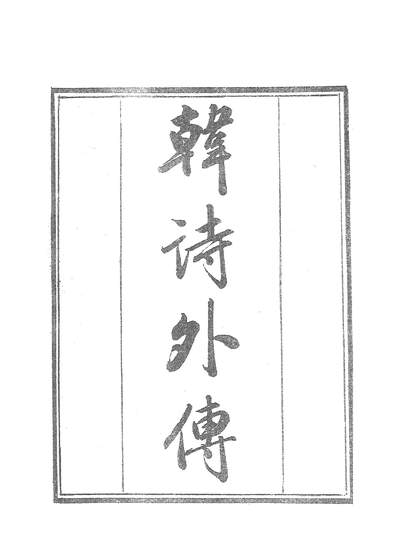 韓诗外傳